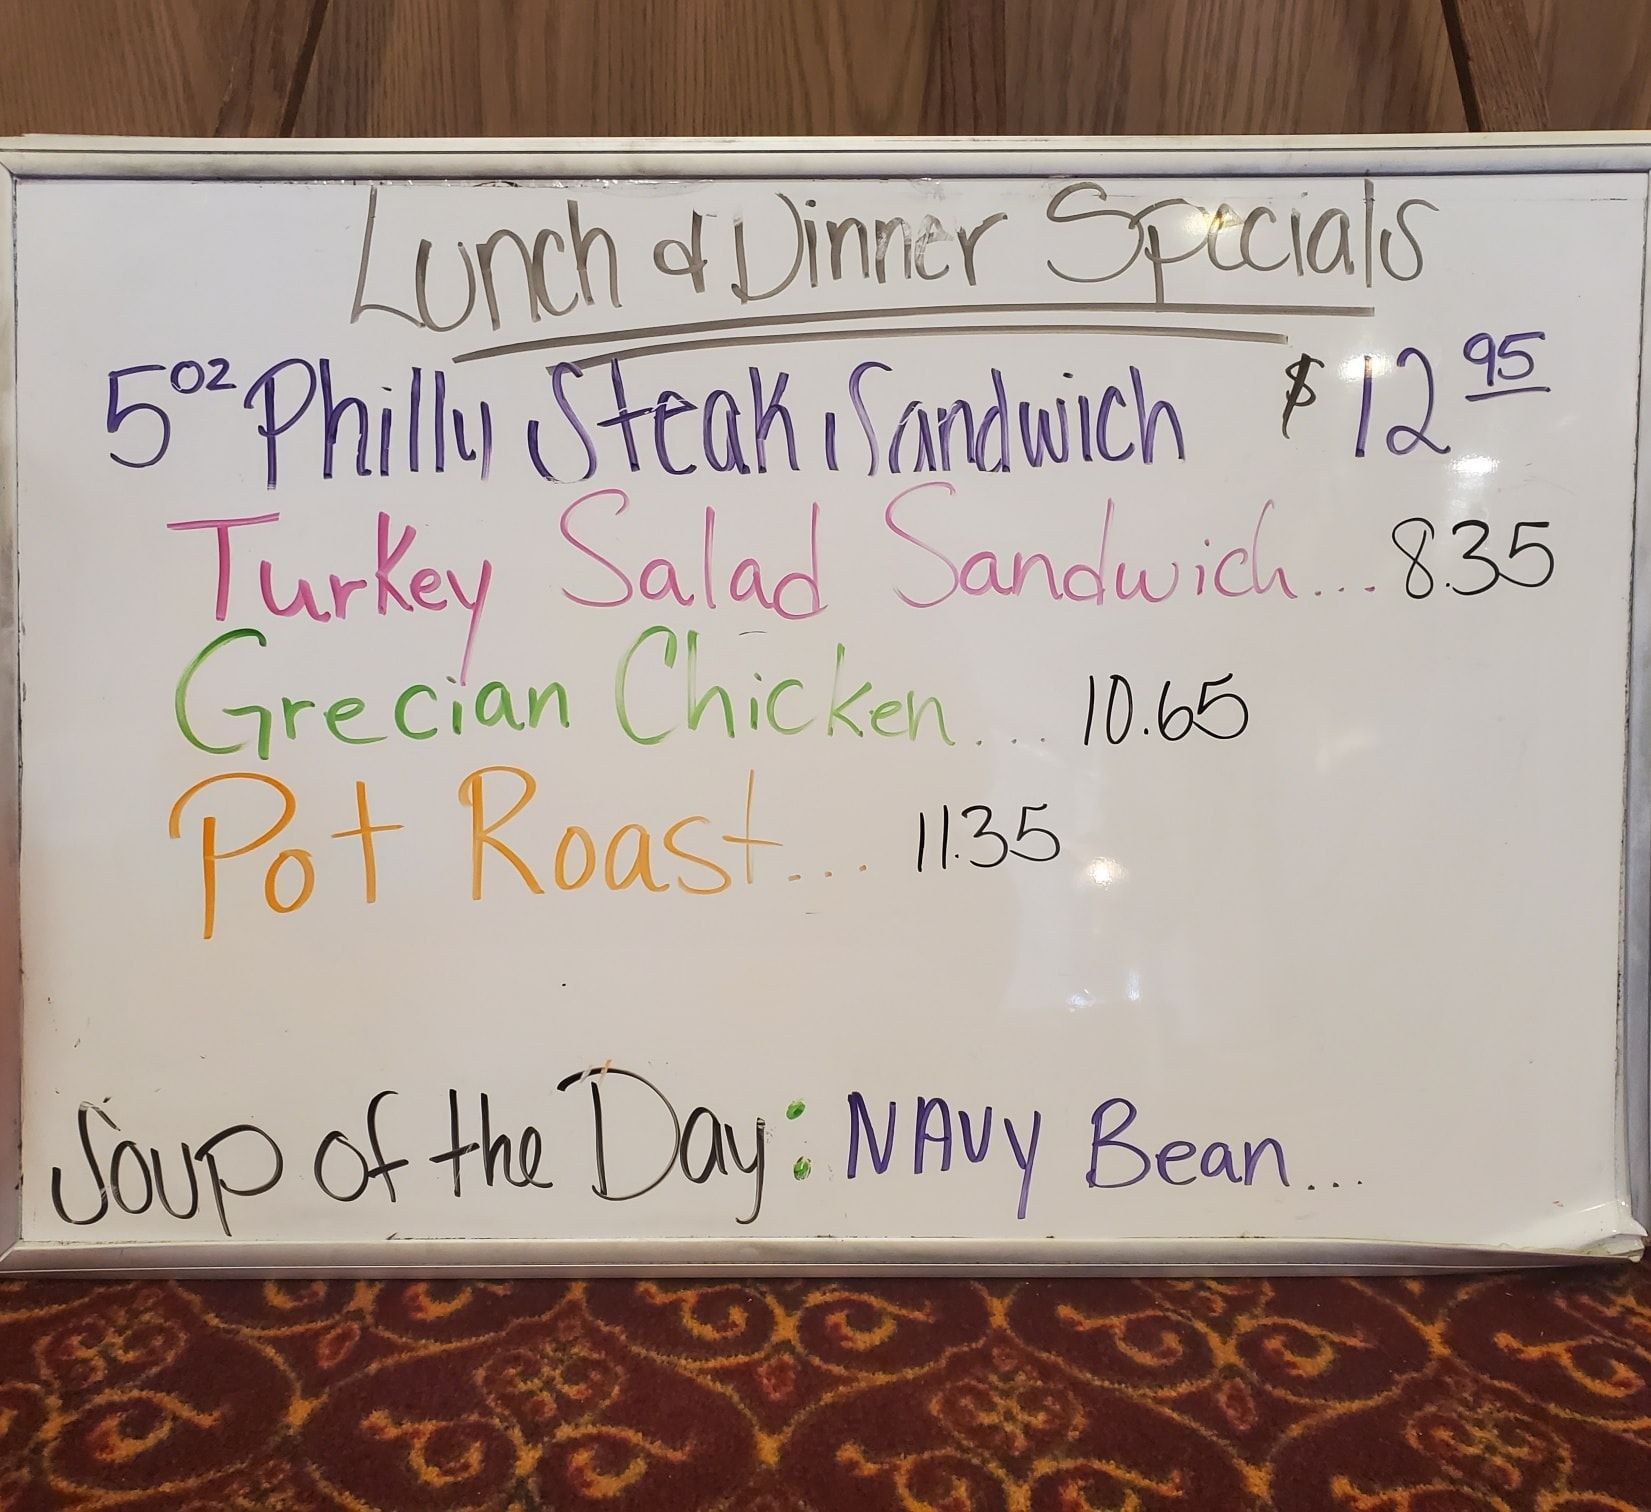 Lunch & Dinner Specials
5oz Philly Steak Sandwich $12 95
Turkey Salad Sandwich... 8.35
Grecian Chicken... 10.65
Pot Roast... 11.35
Soup of the Day: NAvy Bean...